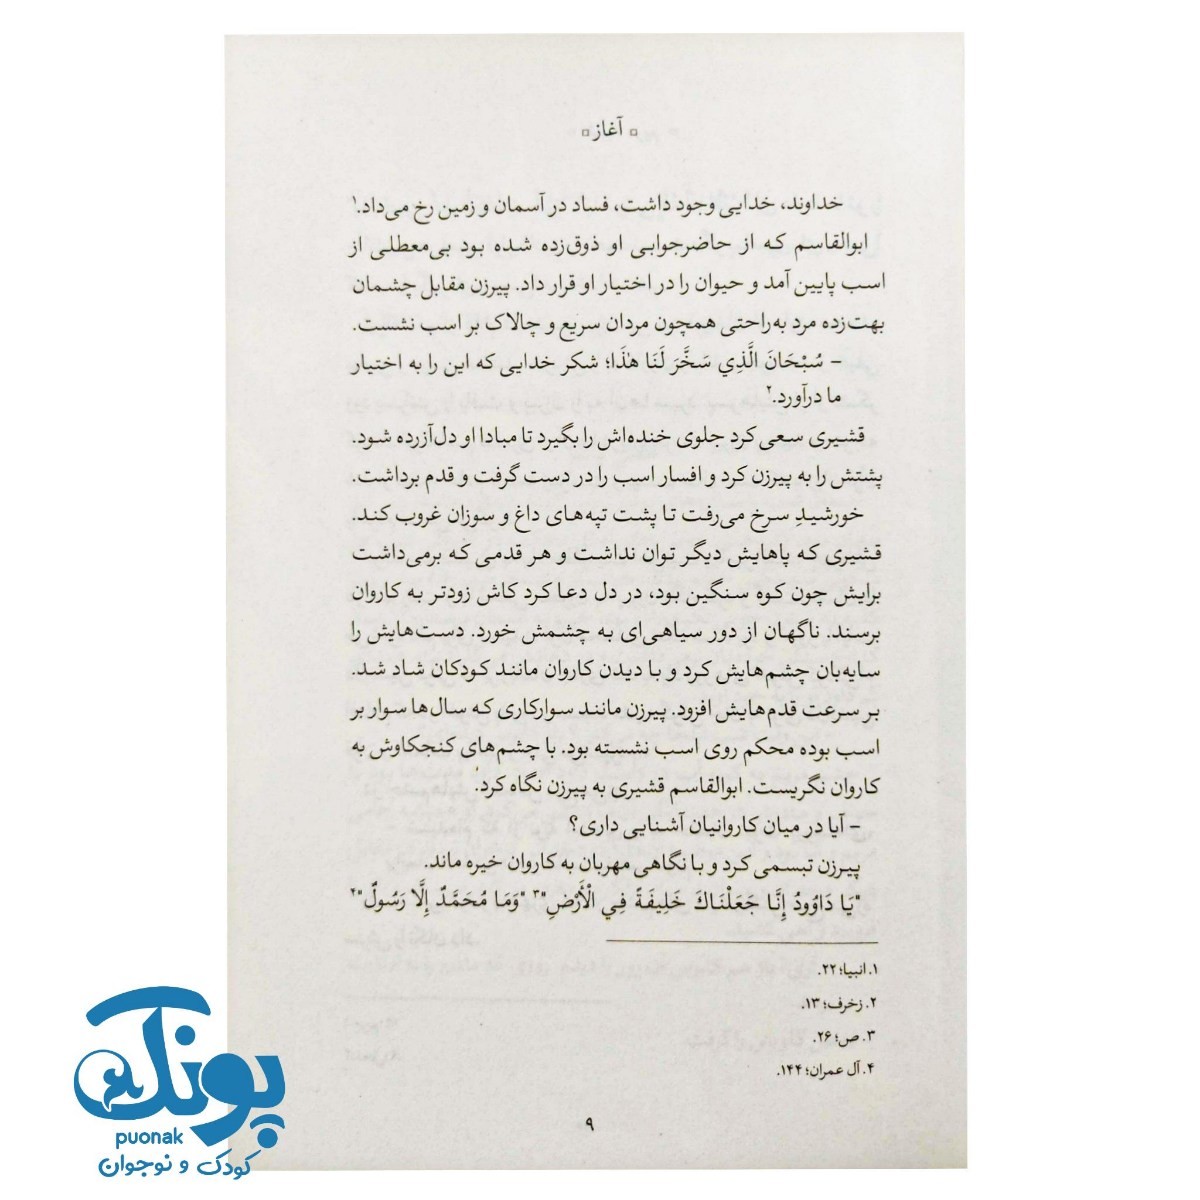 ▫ آغاز ▫
خداوند، خدایی وجود داشت، فساد در آسمان و زمین رخ می‌داد.۱
ابوالقاسم که از حاضرجوابی او ذوق‌زده شده بود بی‌معطلی از
اسب پایین آمد و حیوان را در اختیار او قرار داد. پیرزن مقابل چشمان
بهت‌زده مرد به‌راحتی همچون مردان سریع و چالاک بر اسب نشست.
– سُبْحَانَ الَّذِي سَخَّرَ لَنَا هٰذَا؛ شکر خدایی که این را به اختیار
ما درآورد.۲
قشیری سعی کرد جلوی خنده‌اش را بگیرد تا مبادا او دل‌آزرده شود.
پشتش را به پیرزن کرد و افسار اسب را در دست گرفت و قدم برداشت.
خورشیدِ سرخ می‌رفت تا پشت تپه‌های داغ و سوزان غروب کند.
قشیری که پاهایش دیگر توان نداشت و هر قدمی که برمی‌داشت
برایش چون کوه سنگین بود، در دل دعا کرد کاش زودتر به کاروان
برسند. ناگهان از دور سیاهی‌ای به چشمش خورد. دست‌هایش را
سایه‌بان چشم‌هایش کرد و با دیدن کاروان مانند کودکان شاد شد.
بر سرعت قدم‌هایش افزود. پیرزن مانند سوارکاری که سال‌ها سوار بر
اسب بوده محکم روی اسب نشسته بود. با چشم‌های کنجکاوش به
کاروان نگریست. ابوالقاسم قشیری به پیرزن نگاه کرد.
– آیا در میان کاروانیان آشنایی داری؟
پیرزن تبسمی کرد و با نگاهی مهربان به کاروان خیره ماند.
"يَا دَاوُودُ إِنَّا جَعَلْنَاكَ خَلِيفَةً فِي الْأَرْضِ"۳ "وَمَا مُحَمَّدٌ إِلَّا رَسُولٌ"۴
۱. انبیا؛ ۲۲.
۲. زخرف؛ ۱۳.
۳. ص؛ ۲۶.
۴. آل عمران؛ ۱۴۴.
۹
پونک
puonak
کودک و نوجوان